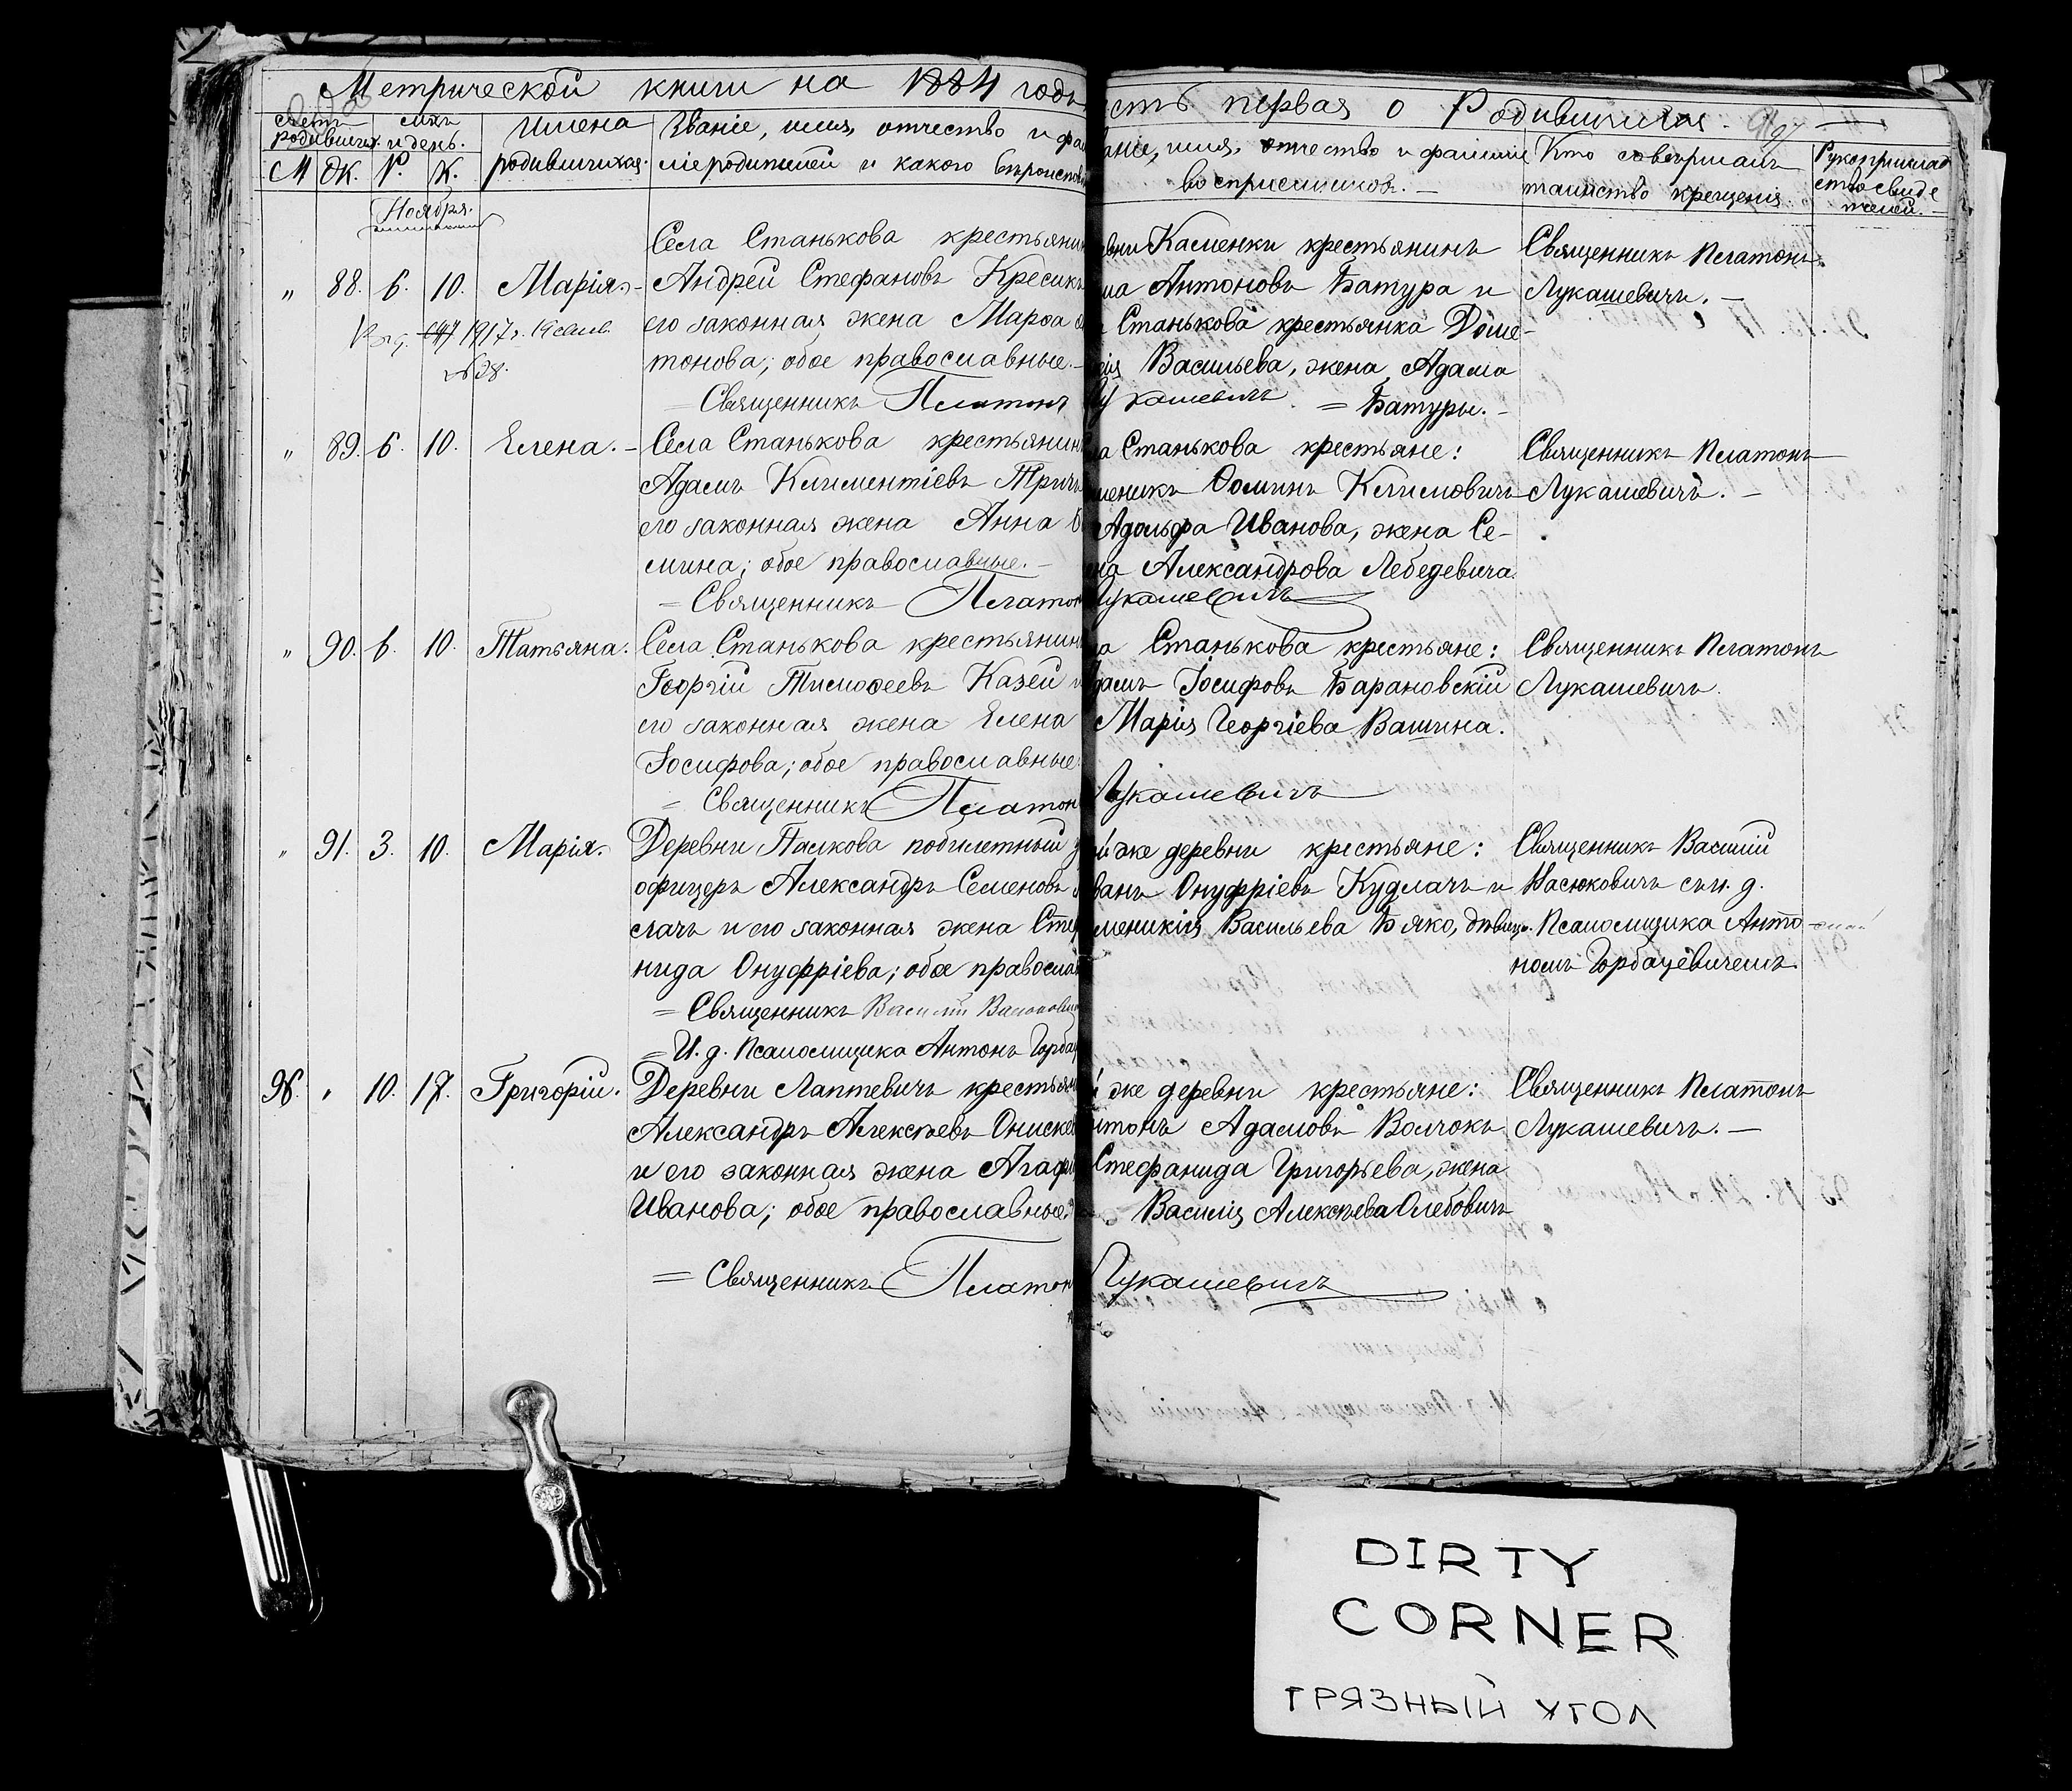 Метрической книги на 1884 годъ
сть первая о Родившихся. 97
родившихся. и день.
М Ж. Р. К.
имена родившихся.
Званіе, имя, отчество и фа
лія родителей и какого вѣроиспов
аніе, имя, отчество и фамилія
воспріемниковъ. —
Кто совершалъ
таинство крещенія.
Рукоприклад
ство свиде
телей. —
Ноября.
" 88. 6. 10. Марія. —
1917 г.
№ 28.
Села Станькова крестьянин
Андрей Стефановъ Кресикъ
его законная жена Марѳа
тонова; обое православные. —
= Священникъ Платонъ
вни Каменки крестьянинъ
ма Антоновъ Батура и
Станькова крестьянка Доме-
Васильева, жена Адама
Лукашевичъ. = Батуры. —
Священникъ Платонъ
Лукашевичъ. —
" 89. 6. 10. Елена. —
Села Станькова крестьянин
Адамъ Климентіевъ
его законная жена Анна
мина; обое православные. —
= Священникъ Платон
ла Станькова крестьяне:
Ѳоминъ Климовичъ
Адольфа Иванова, жена Се-
на Александрова Лебедевича.
Лукашевичъ
Священникъ Платонъ
Лукашевичъ. —
" 90. 6. 10. Татьяна.
Села Станькова крестьянин
Георгій Тимоѳеевъ Казей и
его законная жена Елена
Іосифова; обое православные
= Священникъ Платон
ла Станькова крестьяне:
дамъ Іосифовъ Барановскій
Марія Георгіева Вашина.
Лукашевичъ
Священникъ Платонъ
Лукашевичъ.
" 91. 3. 10. Марія.
Деревни Палкова побилетный у
офицеръ Александръ Семеновъ
лачъ и его законная жена Сте
нида Онуфріева; обое правосла
= Священникъ Василій
= И. д. Псаломщика Антонъ Горба
й же деревни крестьяне:
ванъ Онуфріевъ Кудлачъ и
Васильева Бяко, дѣвица.
Священникъ Василій
Насюковичъ съ и. д.
Псаломщика Анто-
номъ Горбацевичемъ.
96. " 10. 17. Григорій.
Деревни Лаптевичъ крестьян
Александръ Алексѣевъ Ониске
и его законная жена Агафі
Иванова; обое православные.
= Священникъ Платон
же деревни крестьяне:
нтонъ Адамовъ Волчокъ
Стефанида Григорьева, жена
Василія Алексѣева Олебовичъ
Лукашевичъ
Священникъ Платонъ
Лукашевичъ. —
DIRTY
CORNER
ГРЯЗНЫЙ УГОЛ